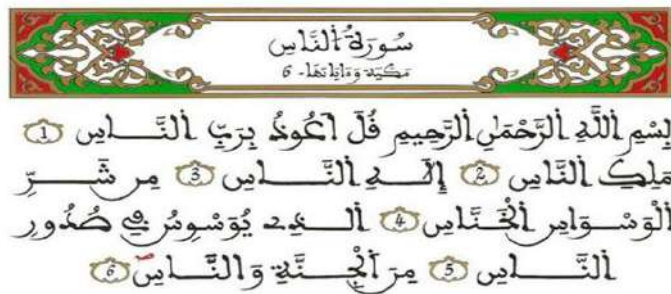 سُورَةُ النَّاسِ
مَكِّيَّة وَءَايَاتهَا - 6
بِسْمِ اللَّهِ الرَّحْمَٰنِ الرَّحِيمِ قُلَ اَعُوذُ بِرَبِّ النَّاسِ 1
مَلِكِ النَّاسِ 2 إِلَٰهِ النَّاسِ 3 مِن شَرِّ
الْوَسْوَاسِ الْخَنَّاسِ 4 الذِے يُوَسْوِسُ فِے صُدُورِ
النَّاسِ 5 مِنَ الْجِنَّةِ وَالنَّاسِ 6